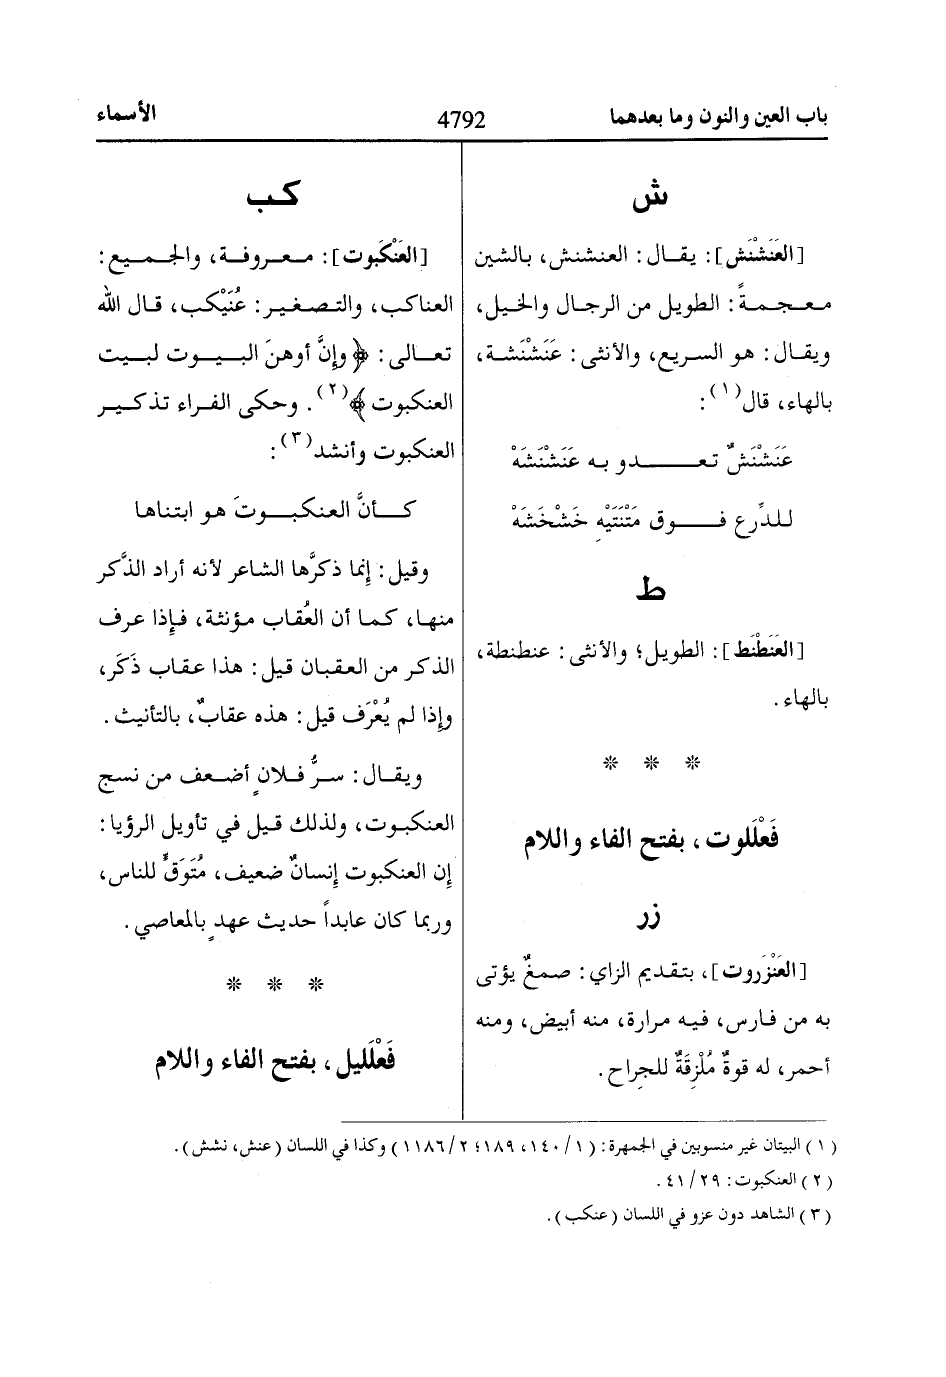 باب العين والنون وما بعدهما 4792 الأسماء
ش
[العَنَشْنَش]: يقال: العنشنش، بالشين
معجمةً: الطويل من الرجال والخيل،
ويقال: هو السريع، والأنثى: عَنَشْنَشة،
بالهاء، قال(١):
عَنَشْنَشٌ تعدو به عَنَشْنَشَهْ
للدِّرع فوق مَتْنَتَيْهِ خَشْخَشَهْ
ط
[العَنَطْنَط]: الطويل؛ والأنثى: عنطنطة،
بالهاء.
* * *
فَعْلَلوت، بفتح الفاء واللام
زر
[العَنْزَروت]، بتقديم الزاي: صمغٌ يؤتى
به من فارس، فيه مرارة، منه أبيض، ومنه
أحمر، له قوةٌ مُلْزِقَةٌ للجراح.
كب
[العَنْكَبوت]: معروفة، والجميع:
العناكب، والتصغير: عُنَيْكب، قال الله
تعالى: ﴿وإنَّ أوهنَ البيوت لبيت
العنكبوت﴾(٢). وحكى الفراء تذكير
العنكبوت وأنشد(٣):
كأنَّ العنكبوتَ هو ابتناها
وقيل: إنما ذكرَّها الشاعر لأنه أراد الذَّكر
منها، كما أن العُقاب مؤنثة، فإذا عرف
الذكر من العقبان قيل: هذا عقاب ذَكَر،
وإذا لم يُعْرَف قيل: هذه عقابٌ، بالتأنيث.
ويقال: سرُّ فلانٍ أضعف من نسج
العنكبوت، ولذلك قيل في تأويل الرؤيا:
إن العنكبوت إنسانٌ ضعيف، مُتَوَقٍّ للناس،
وربما كان عابداً حديث عهدٍ بالمعاصي.
* * *
فَعْلَليل، بفتح الفاء واللام
(١) البيتان غير منسوبين في الجمهرة: (١/ ١٤٠، ١٨٩؛ ٢/ ١١٨٦) وكذا في اللسان (عنش، نشش).
(٢) العنكبوت: ٢٩/ ٤١.
(٣) الشاهد دون عزو في اللسان (عنكب).